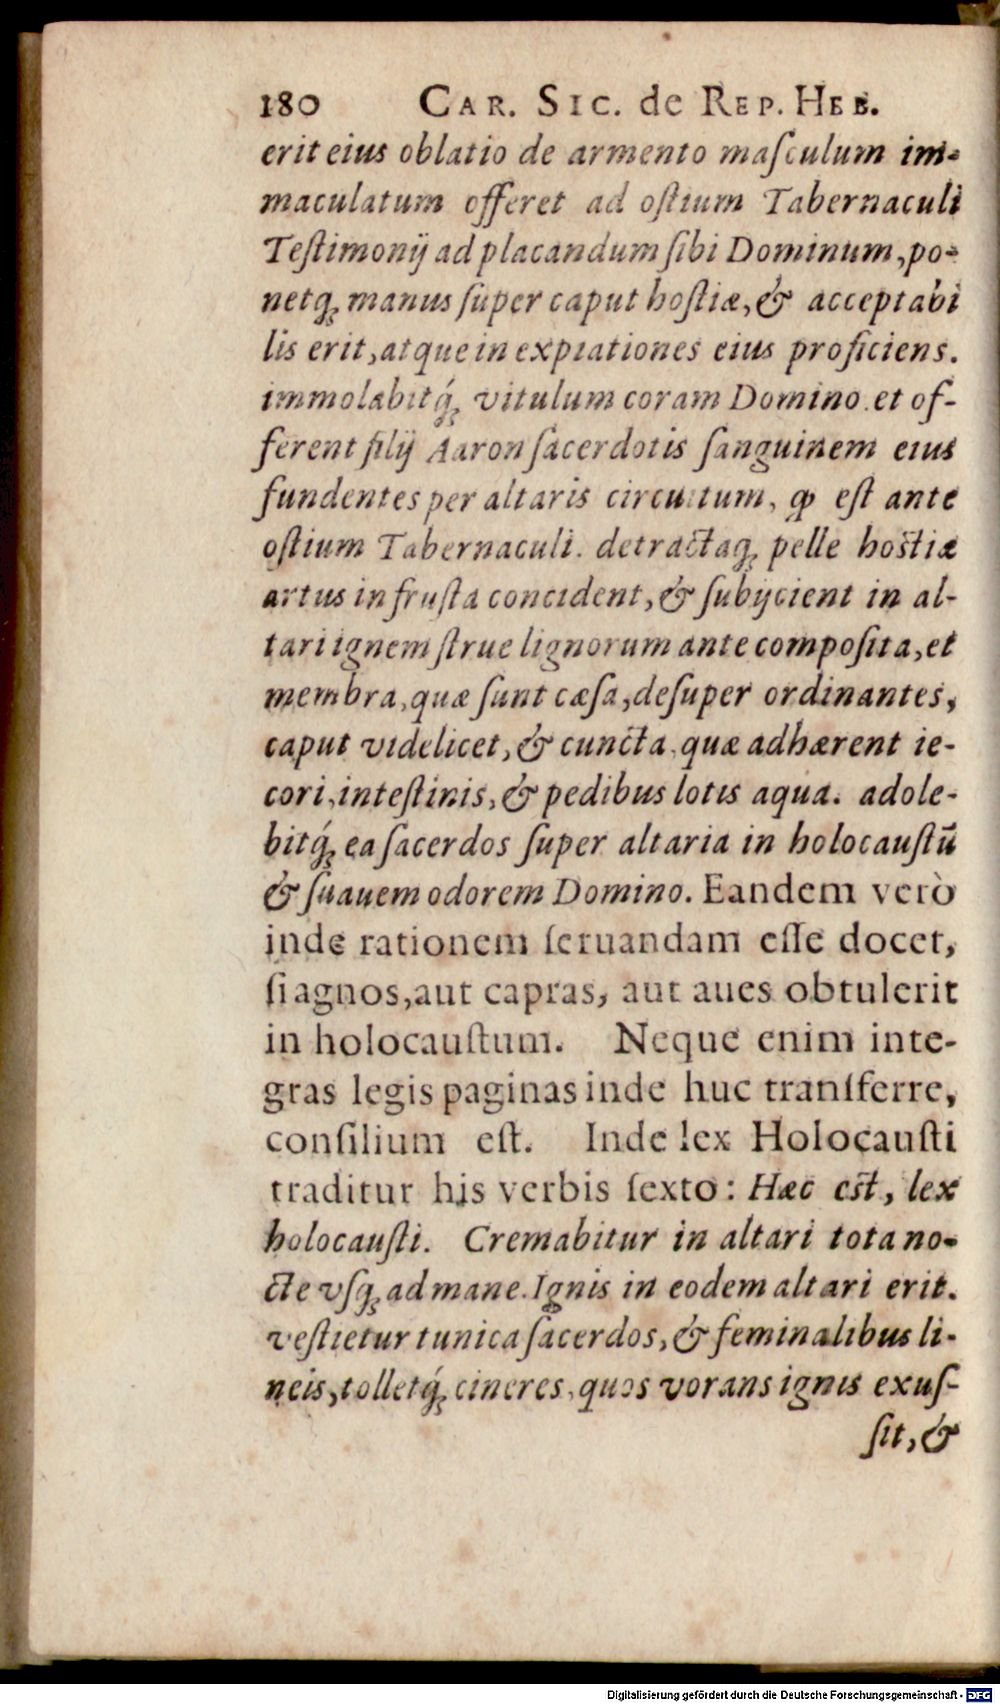 180 CAR. SIC. de REP. HEB.
erit eius oblatio de armento maſculum im-
maculatum offeret ad oſtium Tabernaculi
Teſtimonij ad placandum ſibi Dominum, po-
netq́ꝫ manus ſuper caput hoſtiæ, & acceptabi
lis erit, atque in expiationes eius proficiens.
immolabitq́ꝫ vitulum coram Domino. et of-
ferent filij Aaron ſacerdotis ſanguinem eius
fundentes per altaris circuitum, ꝙ eſt ante
oſtium Tabernaculi. detractaqꝫ pelle hoſtiæ
artus in fruſta concident, & ſubijcient in al-
tari ignem ſtrue lignorum ante compoſita, et
membra, quæ ſunt cæſa, deſuper ordinantes,
caput videlicet, & cuncta, quæ adhærent ie-
cori, inteſtinis, & pedibus lotis aqua. adole-
bitq́ꝫ ea ſacerdos ſuper altaria in holocauſtū
& ſuauem odorem Domino. Eandem verò
inde rationem ſeruandam eſſe docet,
ſi agnos, aut capras, aut aues obtulerit
in holocauſtum. Neque enim inte-
gras legis paginas inde huc tranſferre,
conſilium eſt. Inde lex Holocauſti
traditur his verbis ſexto: Hæc eſt, lex
holocauſti. Cremabitur in altari tota no-
cte vſqꝫ ad mane. Ignis in eodem altari erit.
veſtietur tunica ſacerdos, & feminalibus li-
neis, tolletq́ꝫ cineres, quos vorans ignis exuſ-
ſit, &
Digitalisierung gefördert durch die Deutsche Forschungsgemeinschaft - DFG